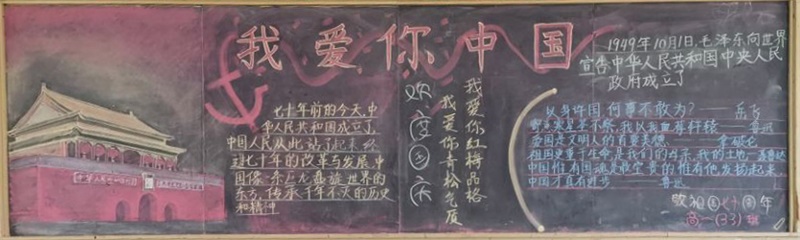 我爱你中国
中华人民共和国
七十年前的今天,中
华人民共和国成立了,
中国人从此站了起来经
过七十年的改革与发展,中
国像一条巨龙盘旋世界的
东方,传承千年不灭的历史
和精神
欢度国庆
我爱你红梅品格
我爱你青松气质
1949年10月1日,毛泽东向世界
宣告中华人民共和国中央人民
政府成立了
以身许国,何事不敢为?——岳飞
寄意寒星荃不察,我以我血荐轩辕——鲁迅
爱国是文明人的首要美德
祖国更重于生命,是我们的母亲,我们的土地
中国惟有国魂是最宝贵的,惟有他发扬起来,
中国才真有进步——鲁迅
致祖国七十周年
高一(33)班